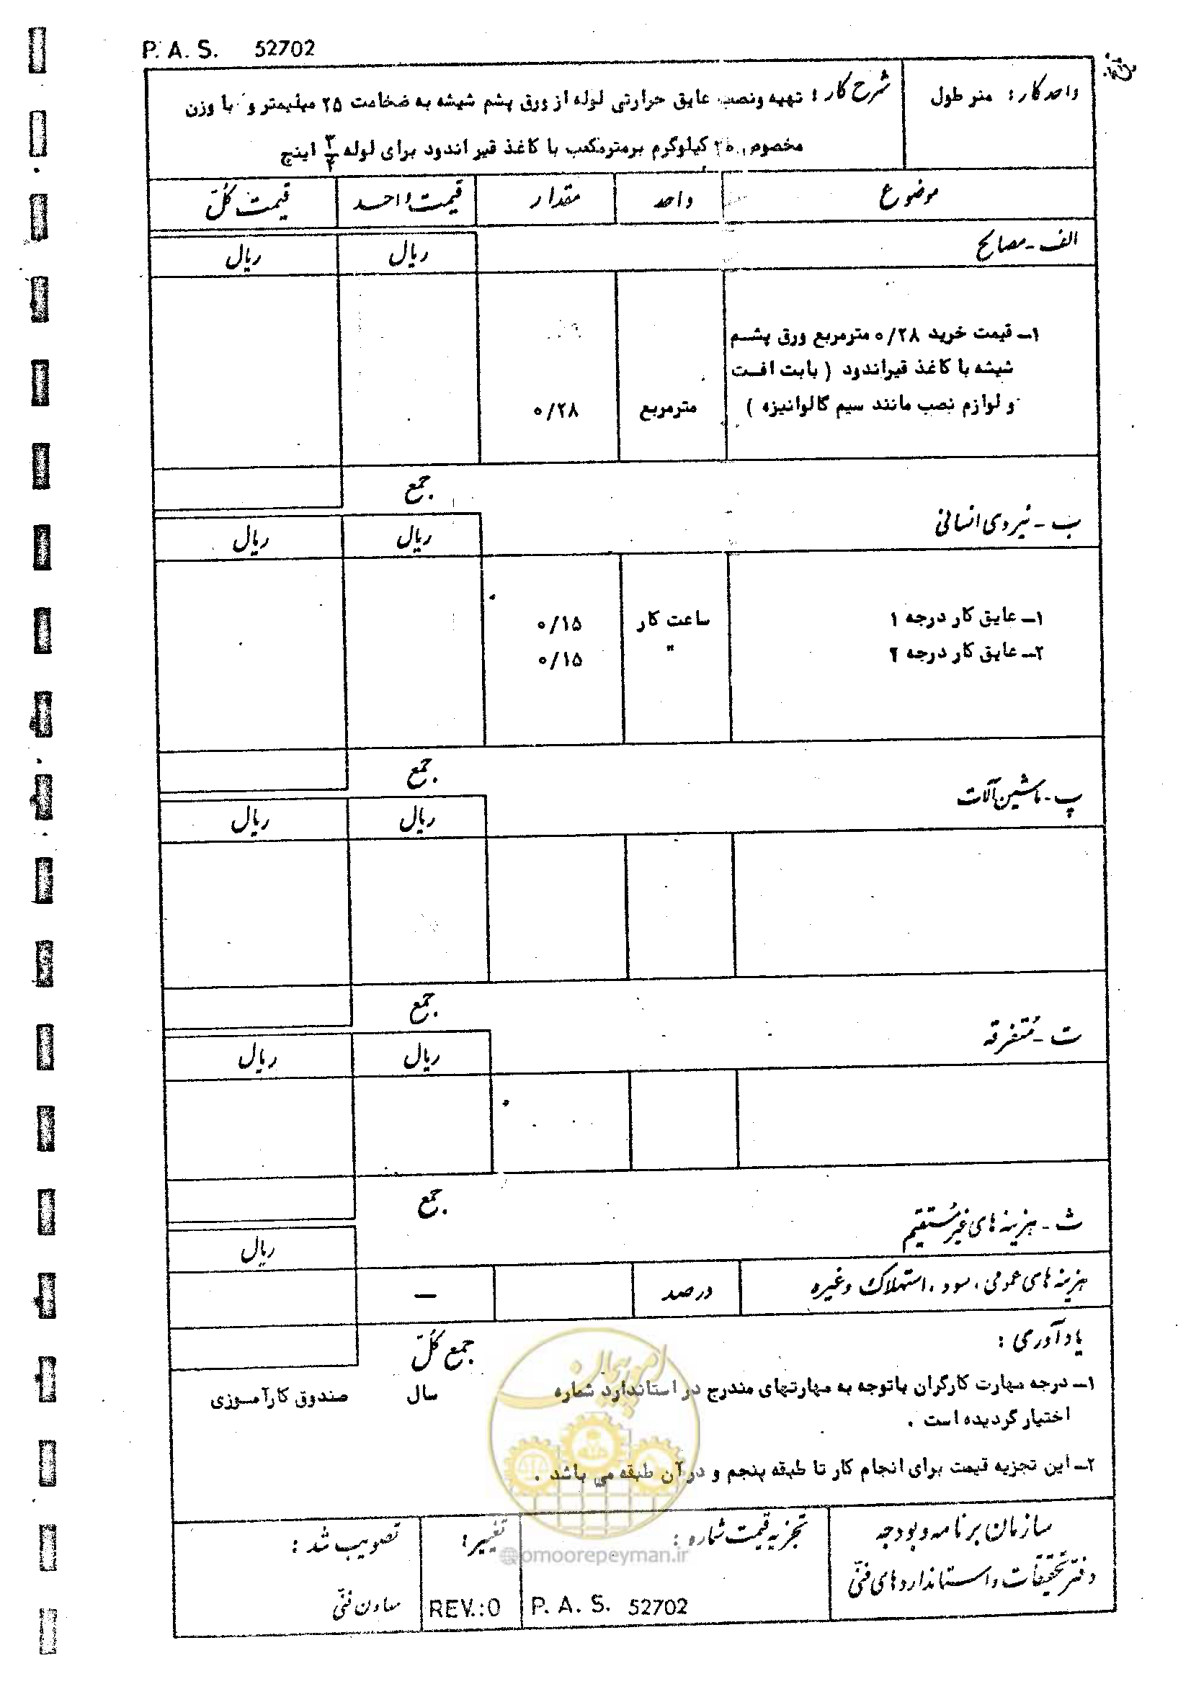 P. A. S. 52702
واحد کار : متر طول
شرح کار : تهیه ونصب عایق حرارتی لوله از ورق پشم شیشه به ضخامت ۲۵ میلیمتر و با وزن
مخصوص کیلوگرم برمترمکعب با کاغذ قیر اندود برای لوله ۳/۴ اینچ
موضوع واحد مقدار قیمت واحد قیمت کلّ
الف - مصالح ریال ریال
۱ــ قیمت خرید ۰/۲۸ مترمربع ورق پشــم
شیشه با کاغذ قیراندود ( بابت افــت
و لوازم نصب مانند سیم گالوانیزه ) مترمربع ۰/۲۸
جمع
ب - نیروی انسانی ریال ریال
۱ــ عایق کار درجه ۱ ساعت کار ۰/۱۵
۲ــ عایق کار درجه ۲ " ۰/۱۵
جمع
پ - ماشین آلات ریال ریال
جمع
ت - مُتفرقه ریال ریال
جمع
ث - هزینه های غیرمُستقیم ریال
هزینه های عمومی ، سود ، استهلاک وغیره درصد —
یادآوری :
جمع کُلّ
۱ــ درجه مهارت کارگران باتوجه به مهارتهای مندرج در استاندارد شماره سال صندوق کارآمــوزی
اختیار گردیده است .
۲ــ این تجزیه قیمت برای انجام کار تا طبقه پنجم و درآن طبقه می باشد .
امور پیمان
@omoorepeyman.ir
سازمان برنامه وبودجه
دفتر تحقیقات واستانداردهای فنّی
تجزیه قیمت شماره :
P. A. S. 52702
تغییر :
REV.:0
تصویب شد :
معاون فنّی